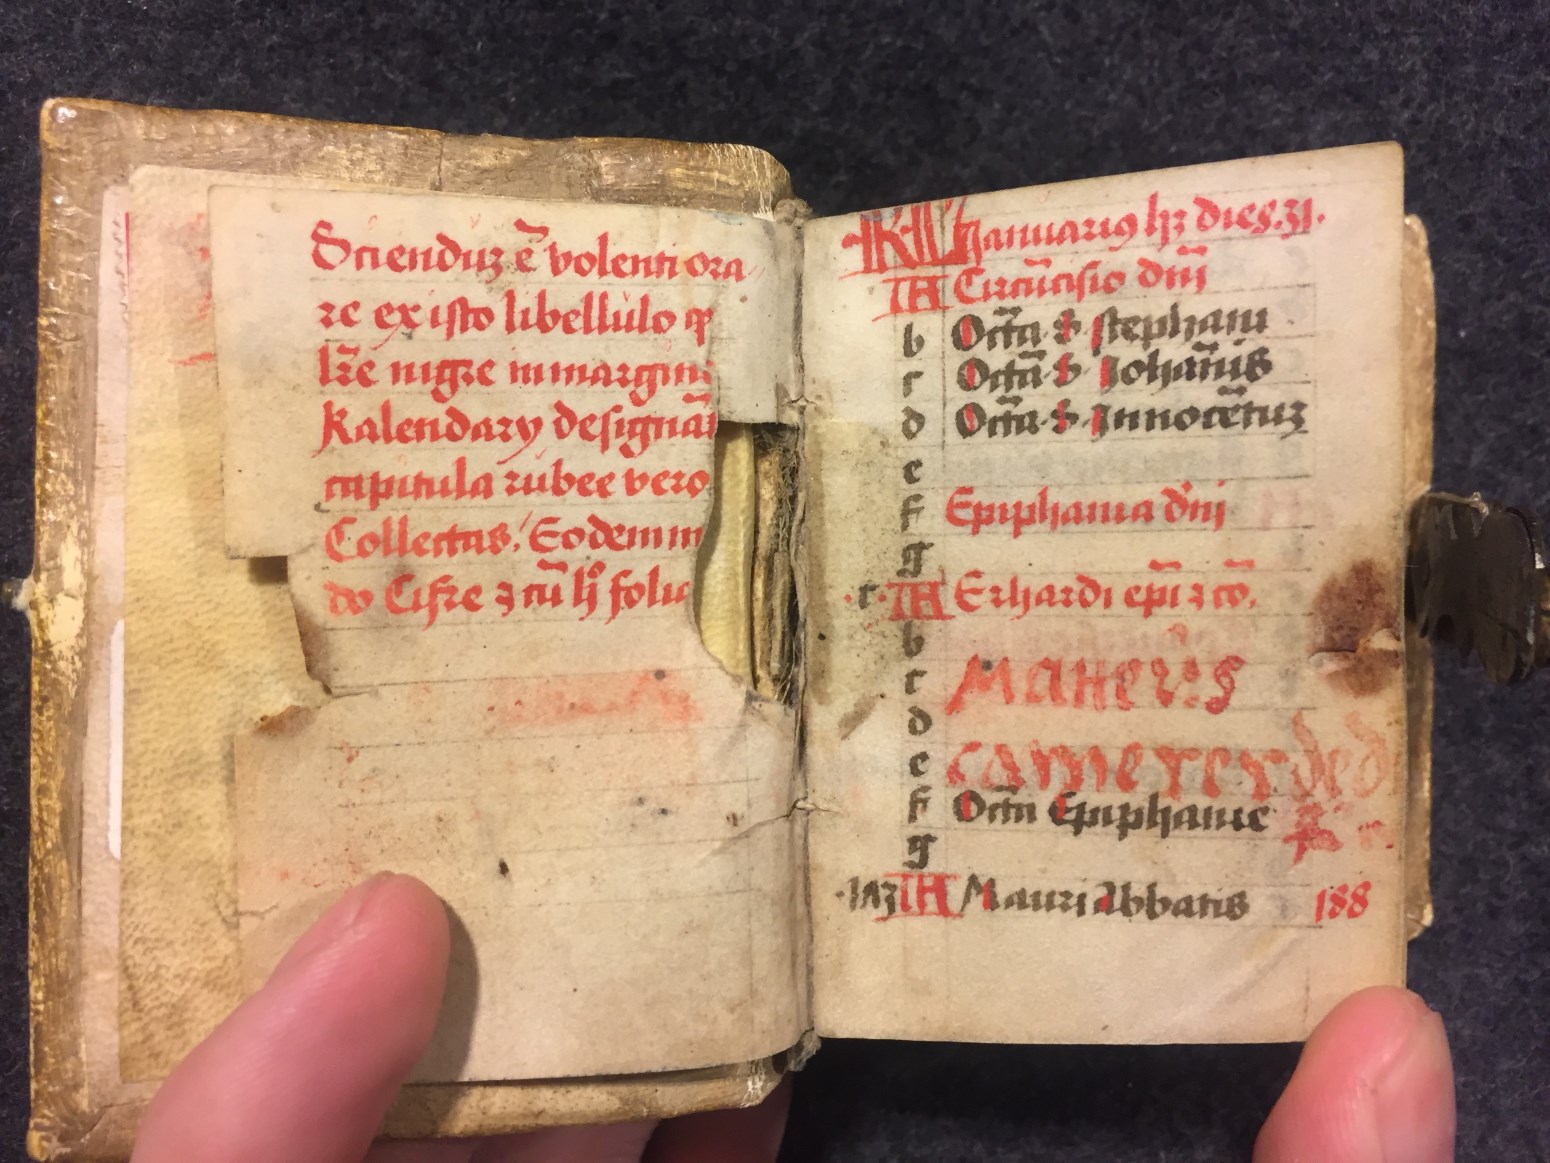 Scienduz ē volenti ora
re ex isto libellulo ꝙ
lr̄e nigre in margine
kalendarÿ designāt
capitula rubee vero
Collectas. Eodem m
do Cifre ⁊ cū hͦ folio
KL Januariꝯ hꝫ dies.31.
A Circūcisio dn̄i
b Octa S stephani
c Octā S Johan̄is
d Octa S Innocētuꝫ
e
f Epiphania dn̄i
g
.c. A Erhardi ep̄i ⁊ cō.
b
c
d
e
f Octa Epiphanie
g
A Mauri Abbatis 188